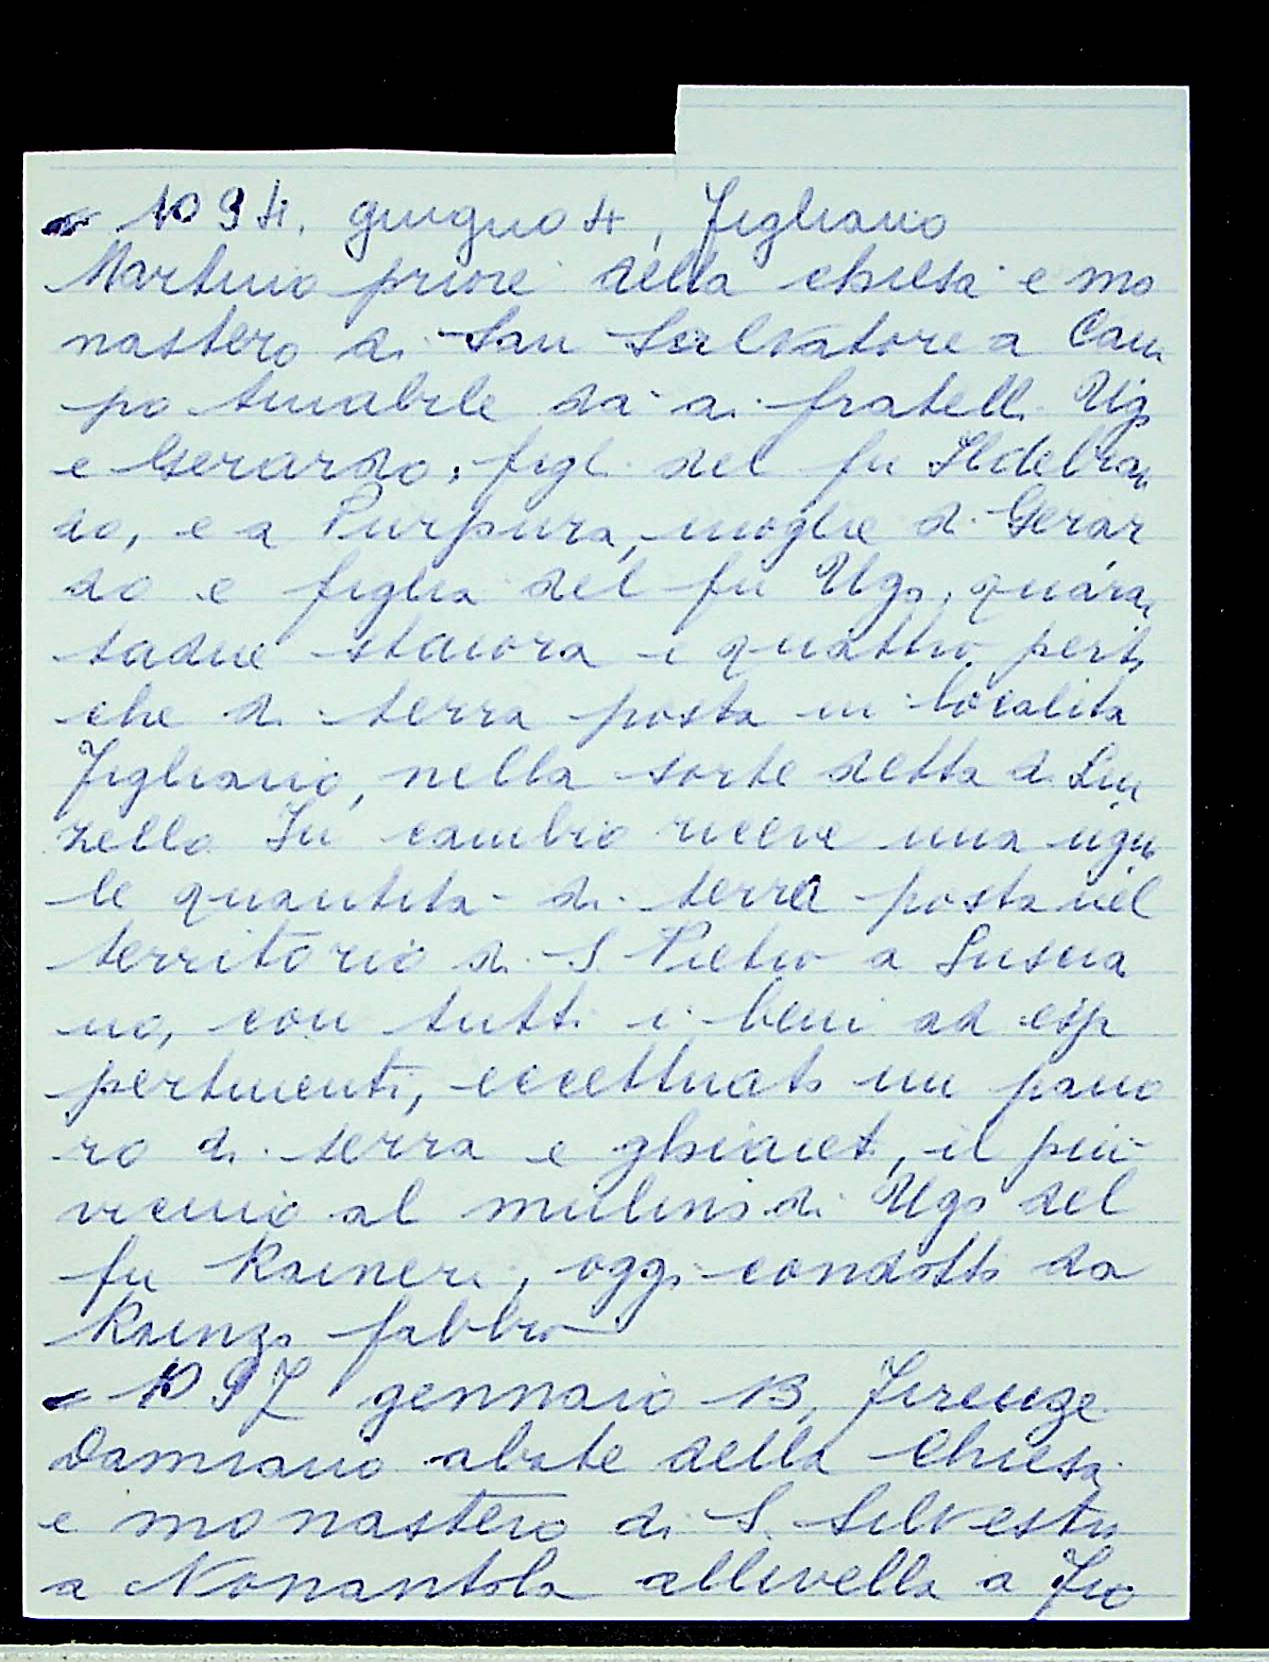 - 1094, giugno 4, Figliano
Martino priore della chiesa e mo
nastero di San Salvatore a Cam
po Amabile dà ai fratelli Ugo
e Gerardo, figli del fu Ildebran
do, e a Purpura, moglie di Gerar
do e figlia del fu Ugo, quaran
tadue staiora e quattro perti
che di terra posta in località
Figliano, nella sorte detta di Lin
zello In cambio riceve una ugua
le quantità di terra posta nel
territorio di S. Pietro a Luscia
no, con tutti i beni ad essa
pertinenti, eccettuato un pano
ro di terra e ghiaieti, il più
vicino al mulino di Ugo del
fu Raineri, oggi condotto da
Rainzo fabbro
- 1097 gennaio 13, Firenze
Damiano abate della Chiesa
e monastero di S. Silvestro
a Nonantola allivella a Fio